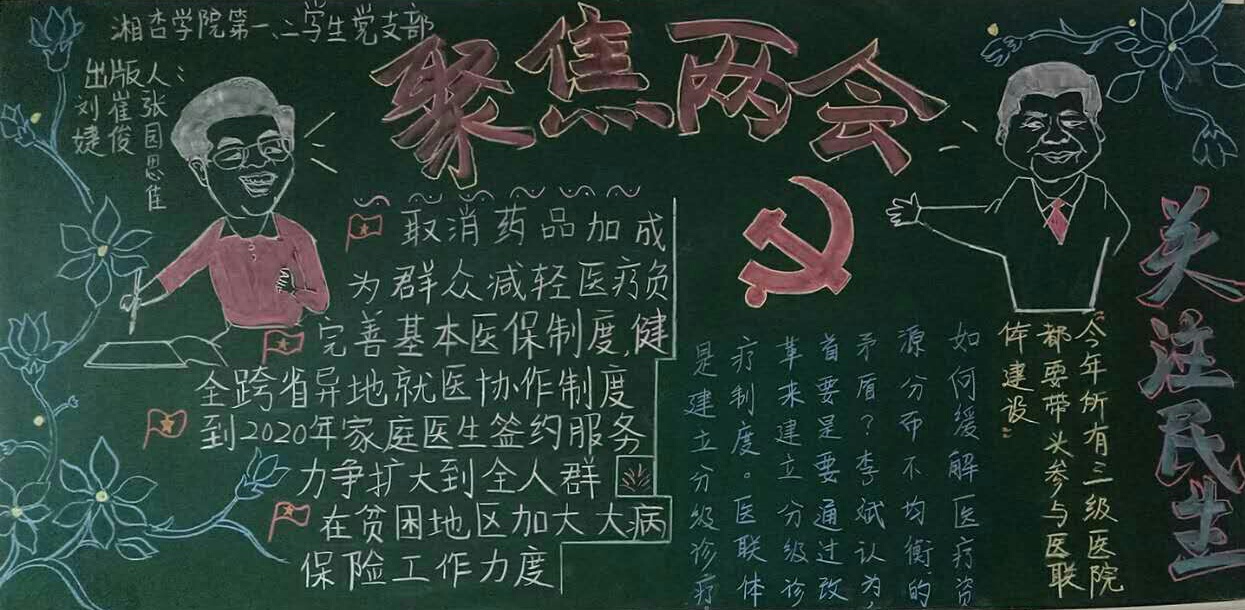 湘杏学院第一、二学生党支部
出版人:
张国恩佳
崔俊
刘婕
聚焦两会
取消药品加成
为群众减轻医疗负
完善基本医保制度,健
全跨省异地就医协作制度
到2020年家庭医生签约服务
力争扩大到全人群
在贫困地区加大大病
保险工作力度
关注民生
“今年所有三级医院
都要带头参与医联
体建设”
如何缓解医疗资
源分布不均衡的
矛盾?李斌认为,
首要是要通过改
革来建立分级诊
疗制度。医联体
是建立分级诊疗